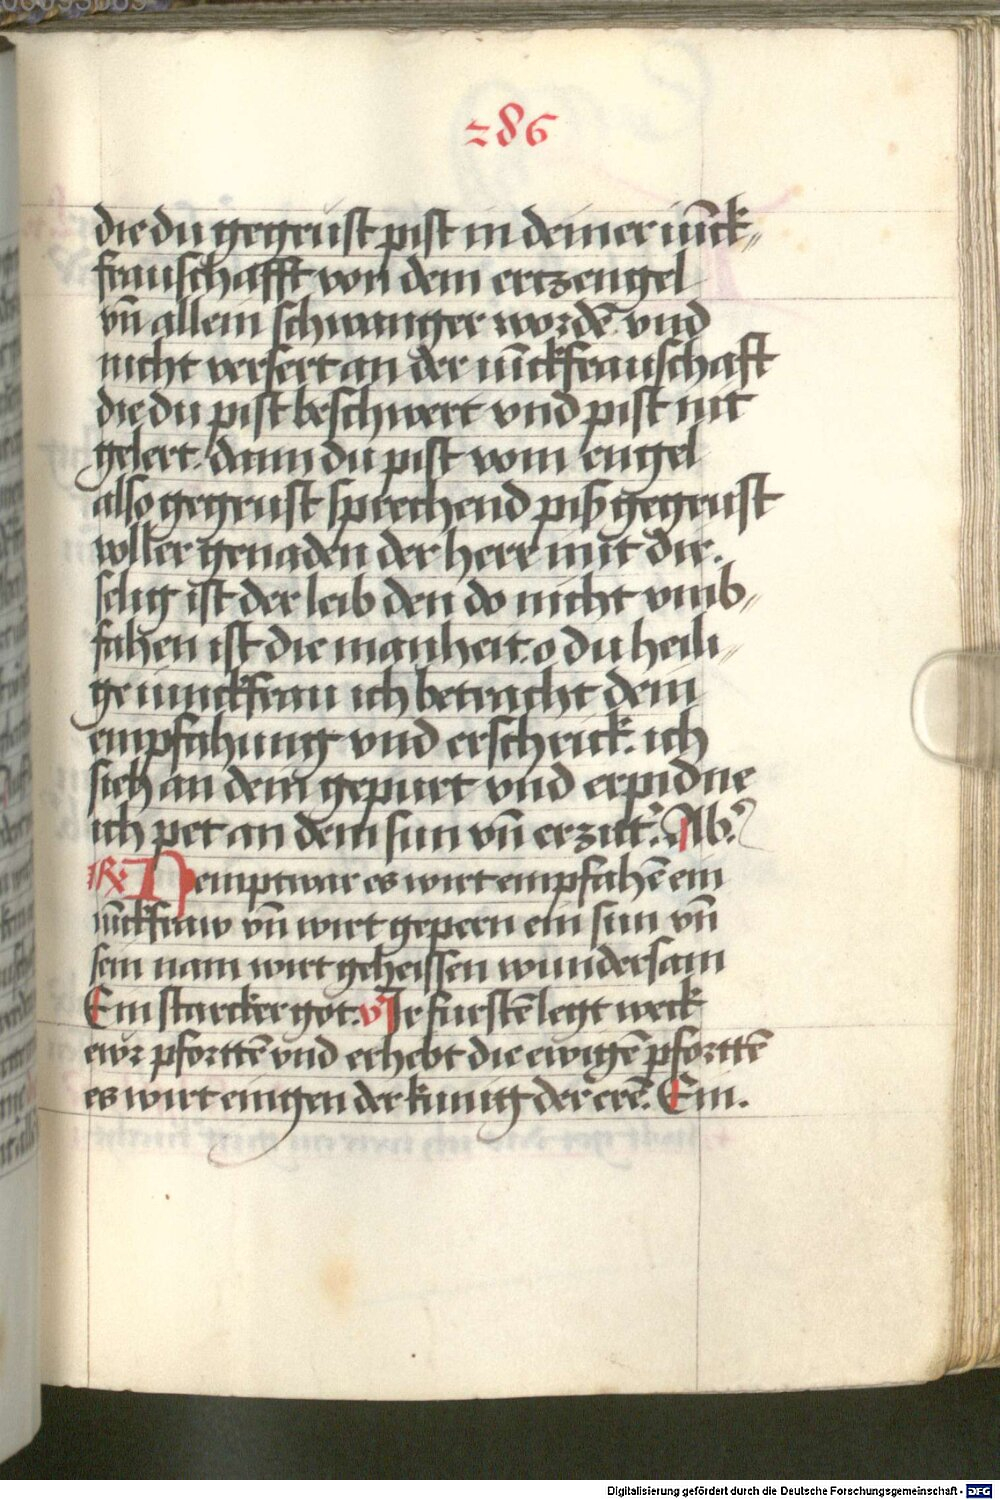 286
die du gegrust pist in deiner iu̅ck⸗
frauschafft von dem ertzengel
vn̅ allein schwanger worde̅ vnd
nicht versert an der iu̅ckfrauschaft
die du pist beschwert vnd pist nit
gelert. dann du pist vom engel
also gegrust sprechend piß gegrust
voller genaden der herr mit dir.
selig ist der leib den do nicht vmb⸗
fahen ist die manheit. o du heili⸗
ge iunckfrau ich betracht dein
empfahung vnd erschrick. ich
sich an dein gepurt vnd erpidne
ich pet an dein sun vn̅ erzitt̾. Ab̾
R Nemptwar es wirt empfahe̅ ein
iu̅ckfraw vn̅ wirt gepern ein sun vn̅
sein nam wirt geheissen wundersam
Ein starcker got. v̾ Ir furste̅ legt weck
ewr pfortte̅ vnd erhebt die ewige̅ pfortte̅
es wirt eingen der kunig der ere̅. Ein.
Digitalisierung gefördert durch die Deutsche Forschungsgemeinschaft - DFG